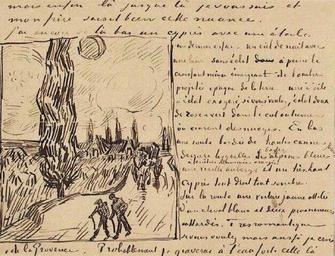 mais enfin là jusque là je vous suis et
mon frère saisit bien cette nuance.
j'ai encore de là bas un cyprès avec une étoile
un dernier essai – un ciel de nuit avec
une lune sans éclat à peine le
croissant mince émergeant de l'ombre
projetée opaque de la terre – une étoile
à éclat exagéré, si vous voulez, éclat doux
de rose & vert dans le ciel outremer
où courent des nuages. En bas
une route bordée de hautes cannes
derrière lesquelles les basses Alpines bleues
une vieille auberge à fenêtres illuminées orangé et un très haut
cyprès tout droit tout sombre
Sur la route une voiture jaune attelée
d'un cheval blanc et deux promeneurs
attardés. Très romantique
si vous voulez mais aussi je crois
de la Provence. Probablement je graverai à l'eau forte celle là